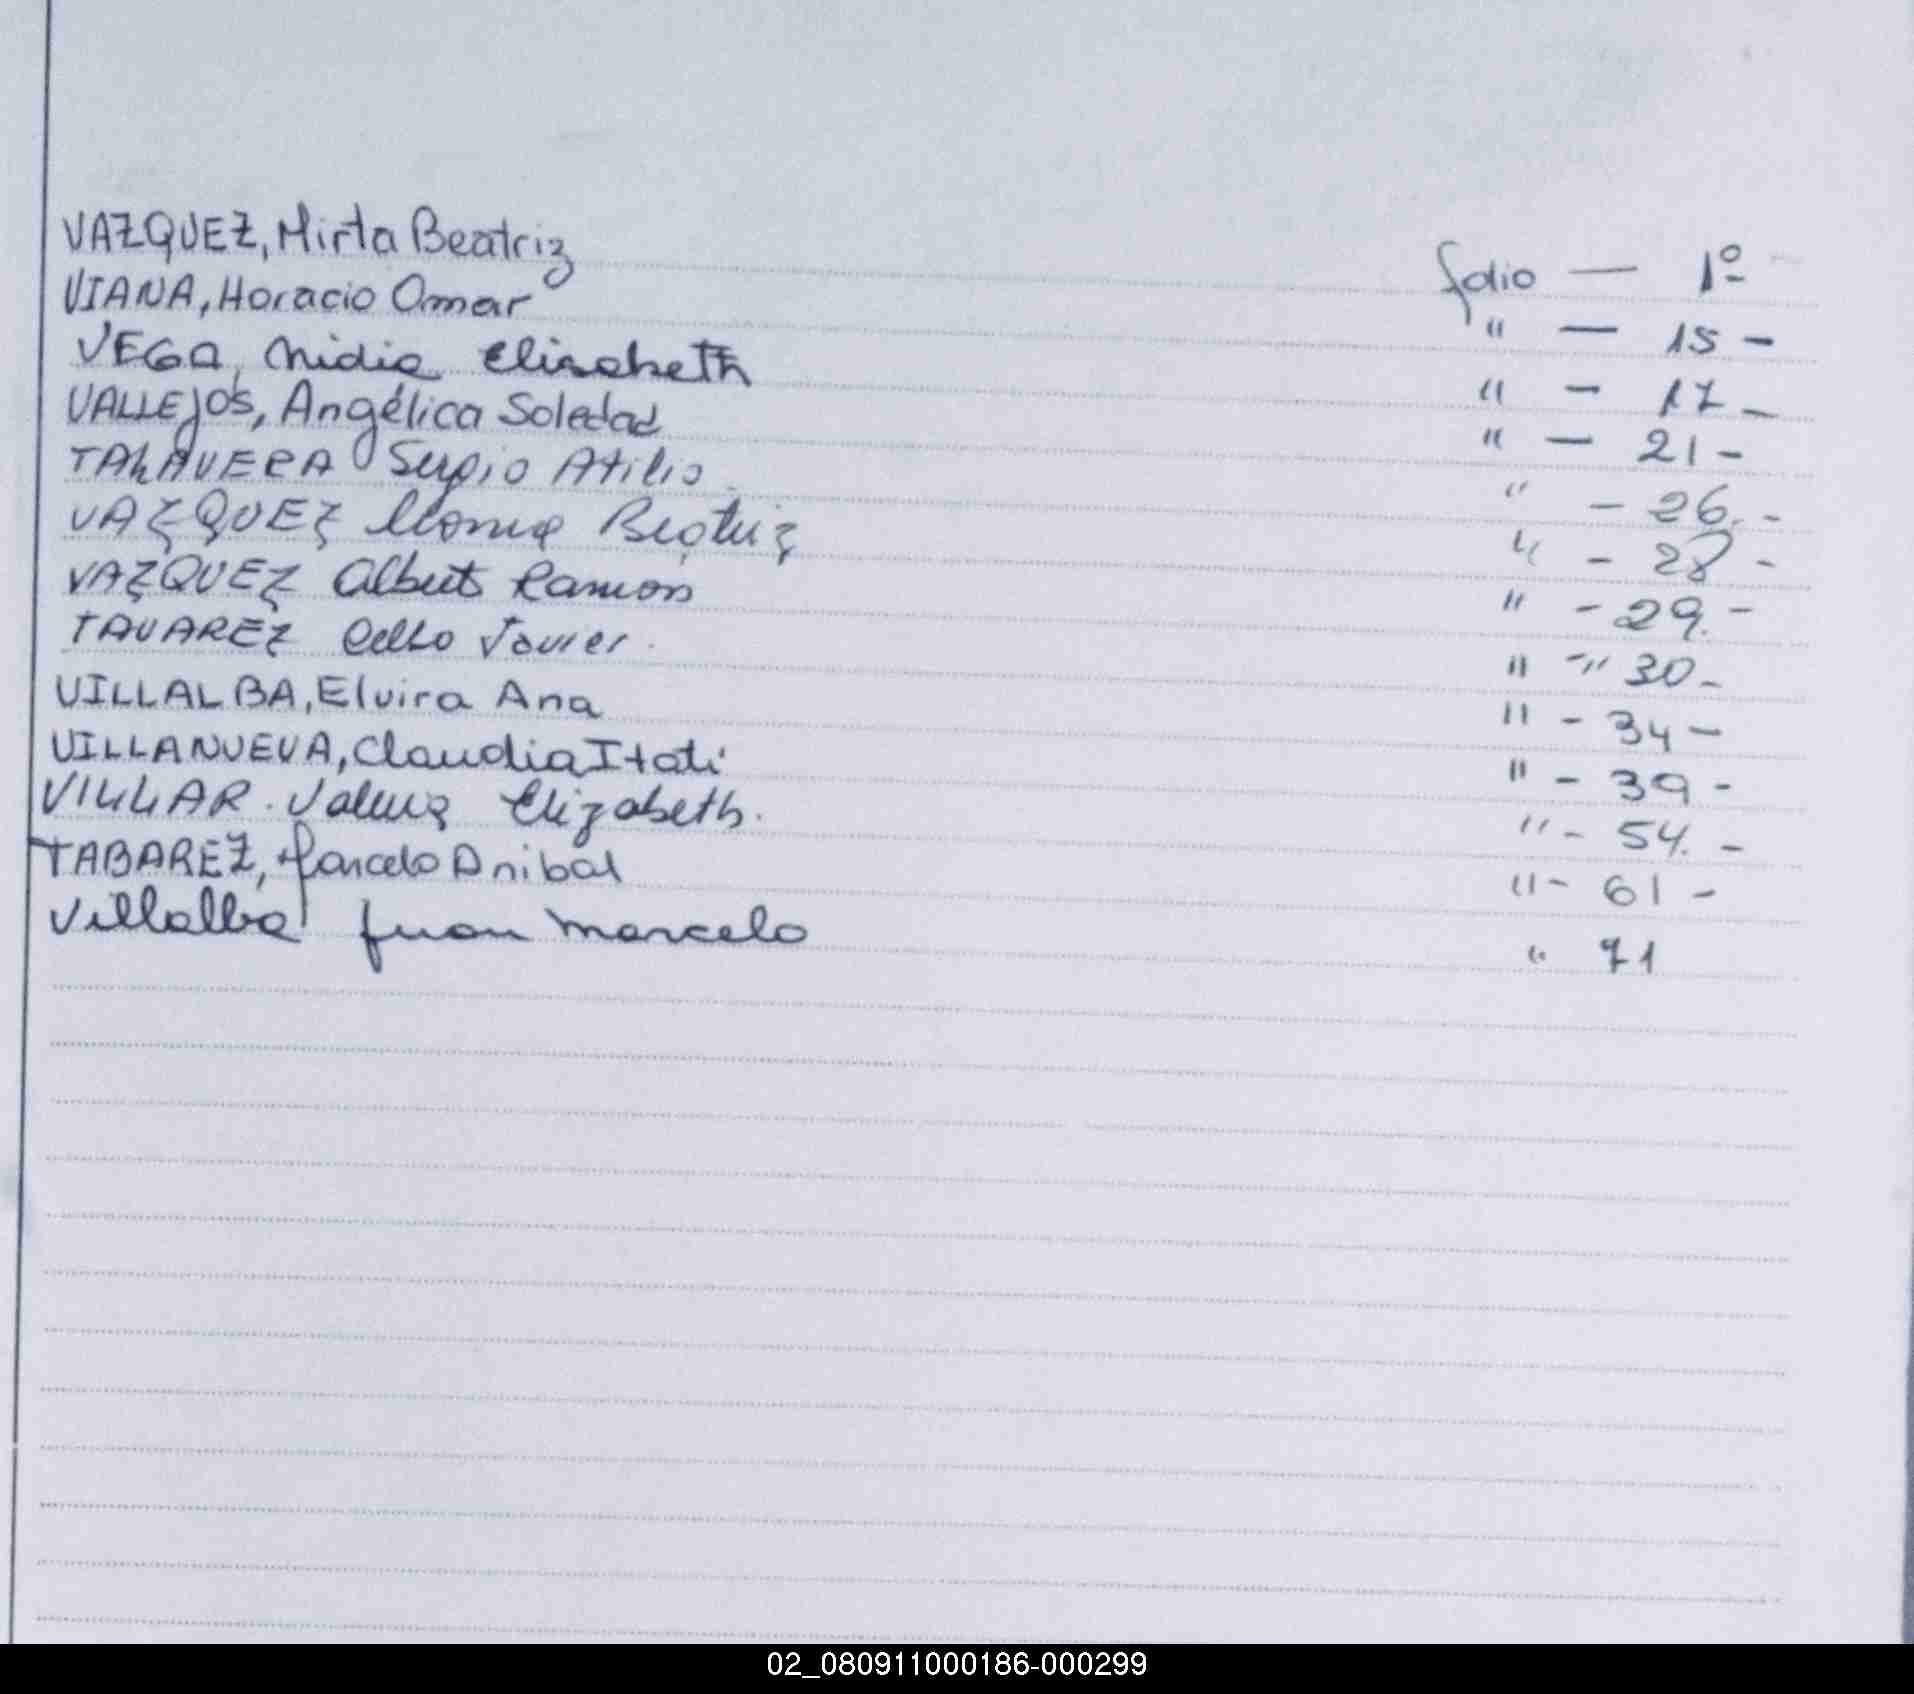 VAZQUEZ, Mirta Beatriz folio — 1º
VIANA, Horacio Omar " — 15 -
VEGA, Nidia Elisabeth " - 17 -
VALLEJOS, Angélica Soledad " - 21 -
TALAVERA Sergio Atilio " - 26. -
VAZQUEZ Beatriz " - 28 -
VAZQUEZ Alberto Ramon " - 29. -
TAVAREZ Celso Javier. " - " 30 -
VILLALBA, Elvira Ana " - 34 -
VILLANUEVA, Claudia Itati " - 39 -
VILLAR. Elizabeth. " - 54. -
TABAREZ, Marcelo Anibal " - 61 -
Villalba Juan Marcelo " 71
02_080911000186-000299